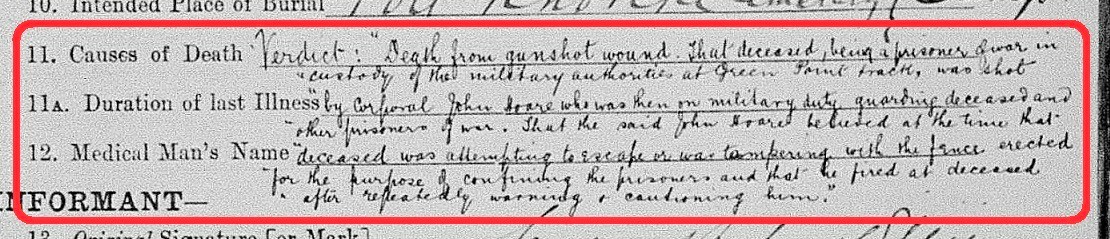 10. Intended Place of Burial
11. Causes of Death Verdict: "Death from gunshot wound. That deceased, being a prisoner of war in
"custody of the military authorities at Green Point track, was shot
11A. Duration of last Illness "by Corporal John Hoare who was then on military duty guarding deceased and
"other prisoners of war. That the said John Hoare believed at the time that
12. Medical Man's Name "deceased was attempting to escape or was tampering with the fence erected
"for the purpose of confining the prisoners and that he fired at deceased
" after repeatedly warning & cautioning him."
INFORMANT—
13. Original Signature [or Mark]